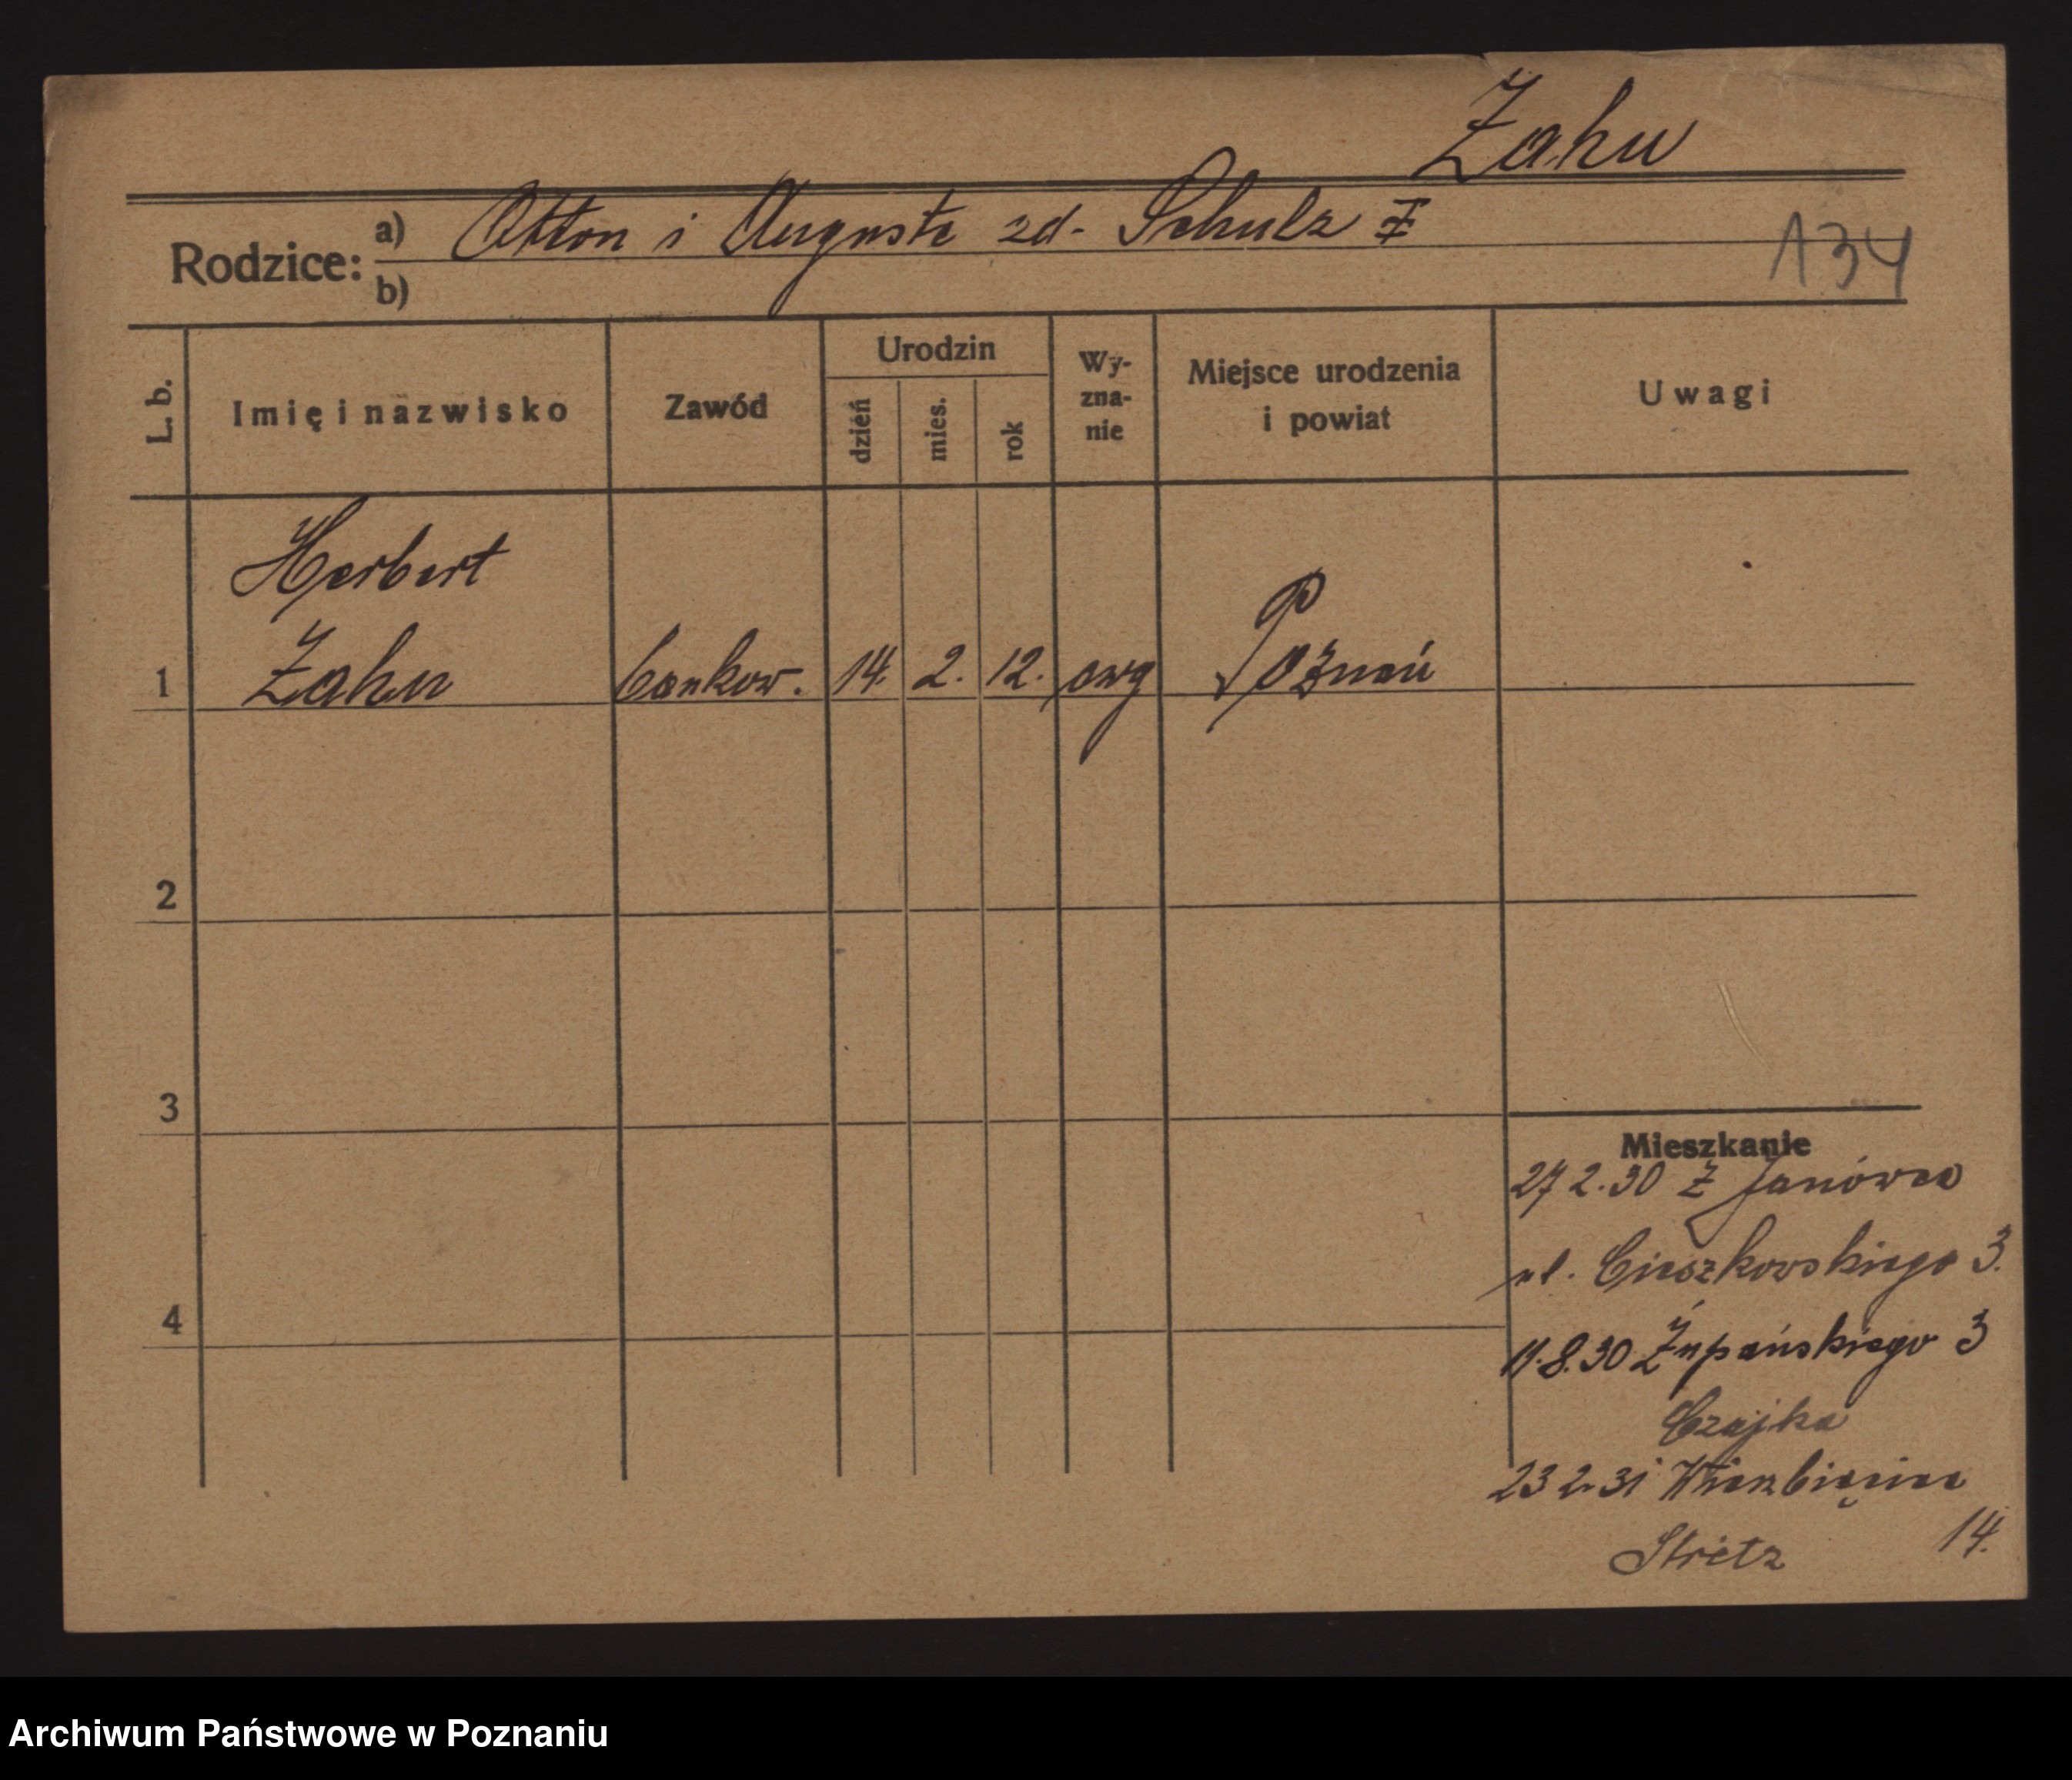 Zahn
Rodzice: a) Otton i Auguste zd. Schulz
134
b)
L. b.
Imię i nazwisko
Zawód
Urodzin
dzień
mies.
rok
Wy-
zna-
nie
Miejsce urodzenia
i powiat
Uwagi
Herbert
1 Zahn bankow. 14. 2. 12. ewg Poznań
2
3
4
Mieszkanie
27 2.30 z Janówca
ul. Cieszkowskiego 3.
11.8.30 Żupańskiego 3
Czajka
23 2.31 Wierzbięcice
14.
Stretz
Archiwum Państwowe w Poznaniu